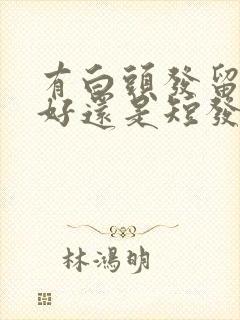 有白頭發留
好還是短發
林鴻明